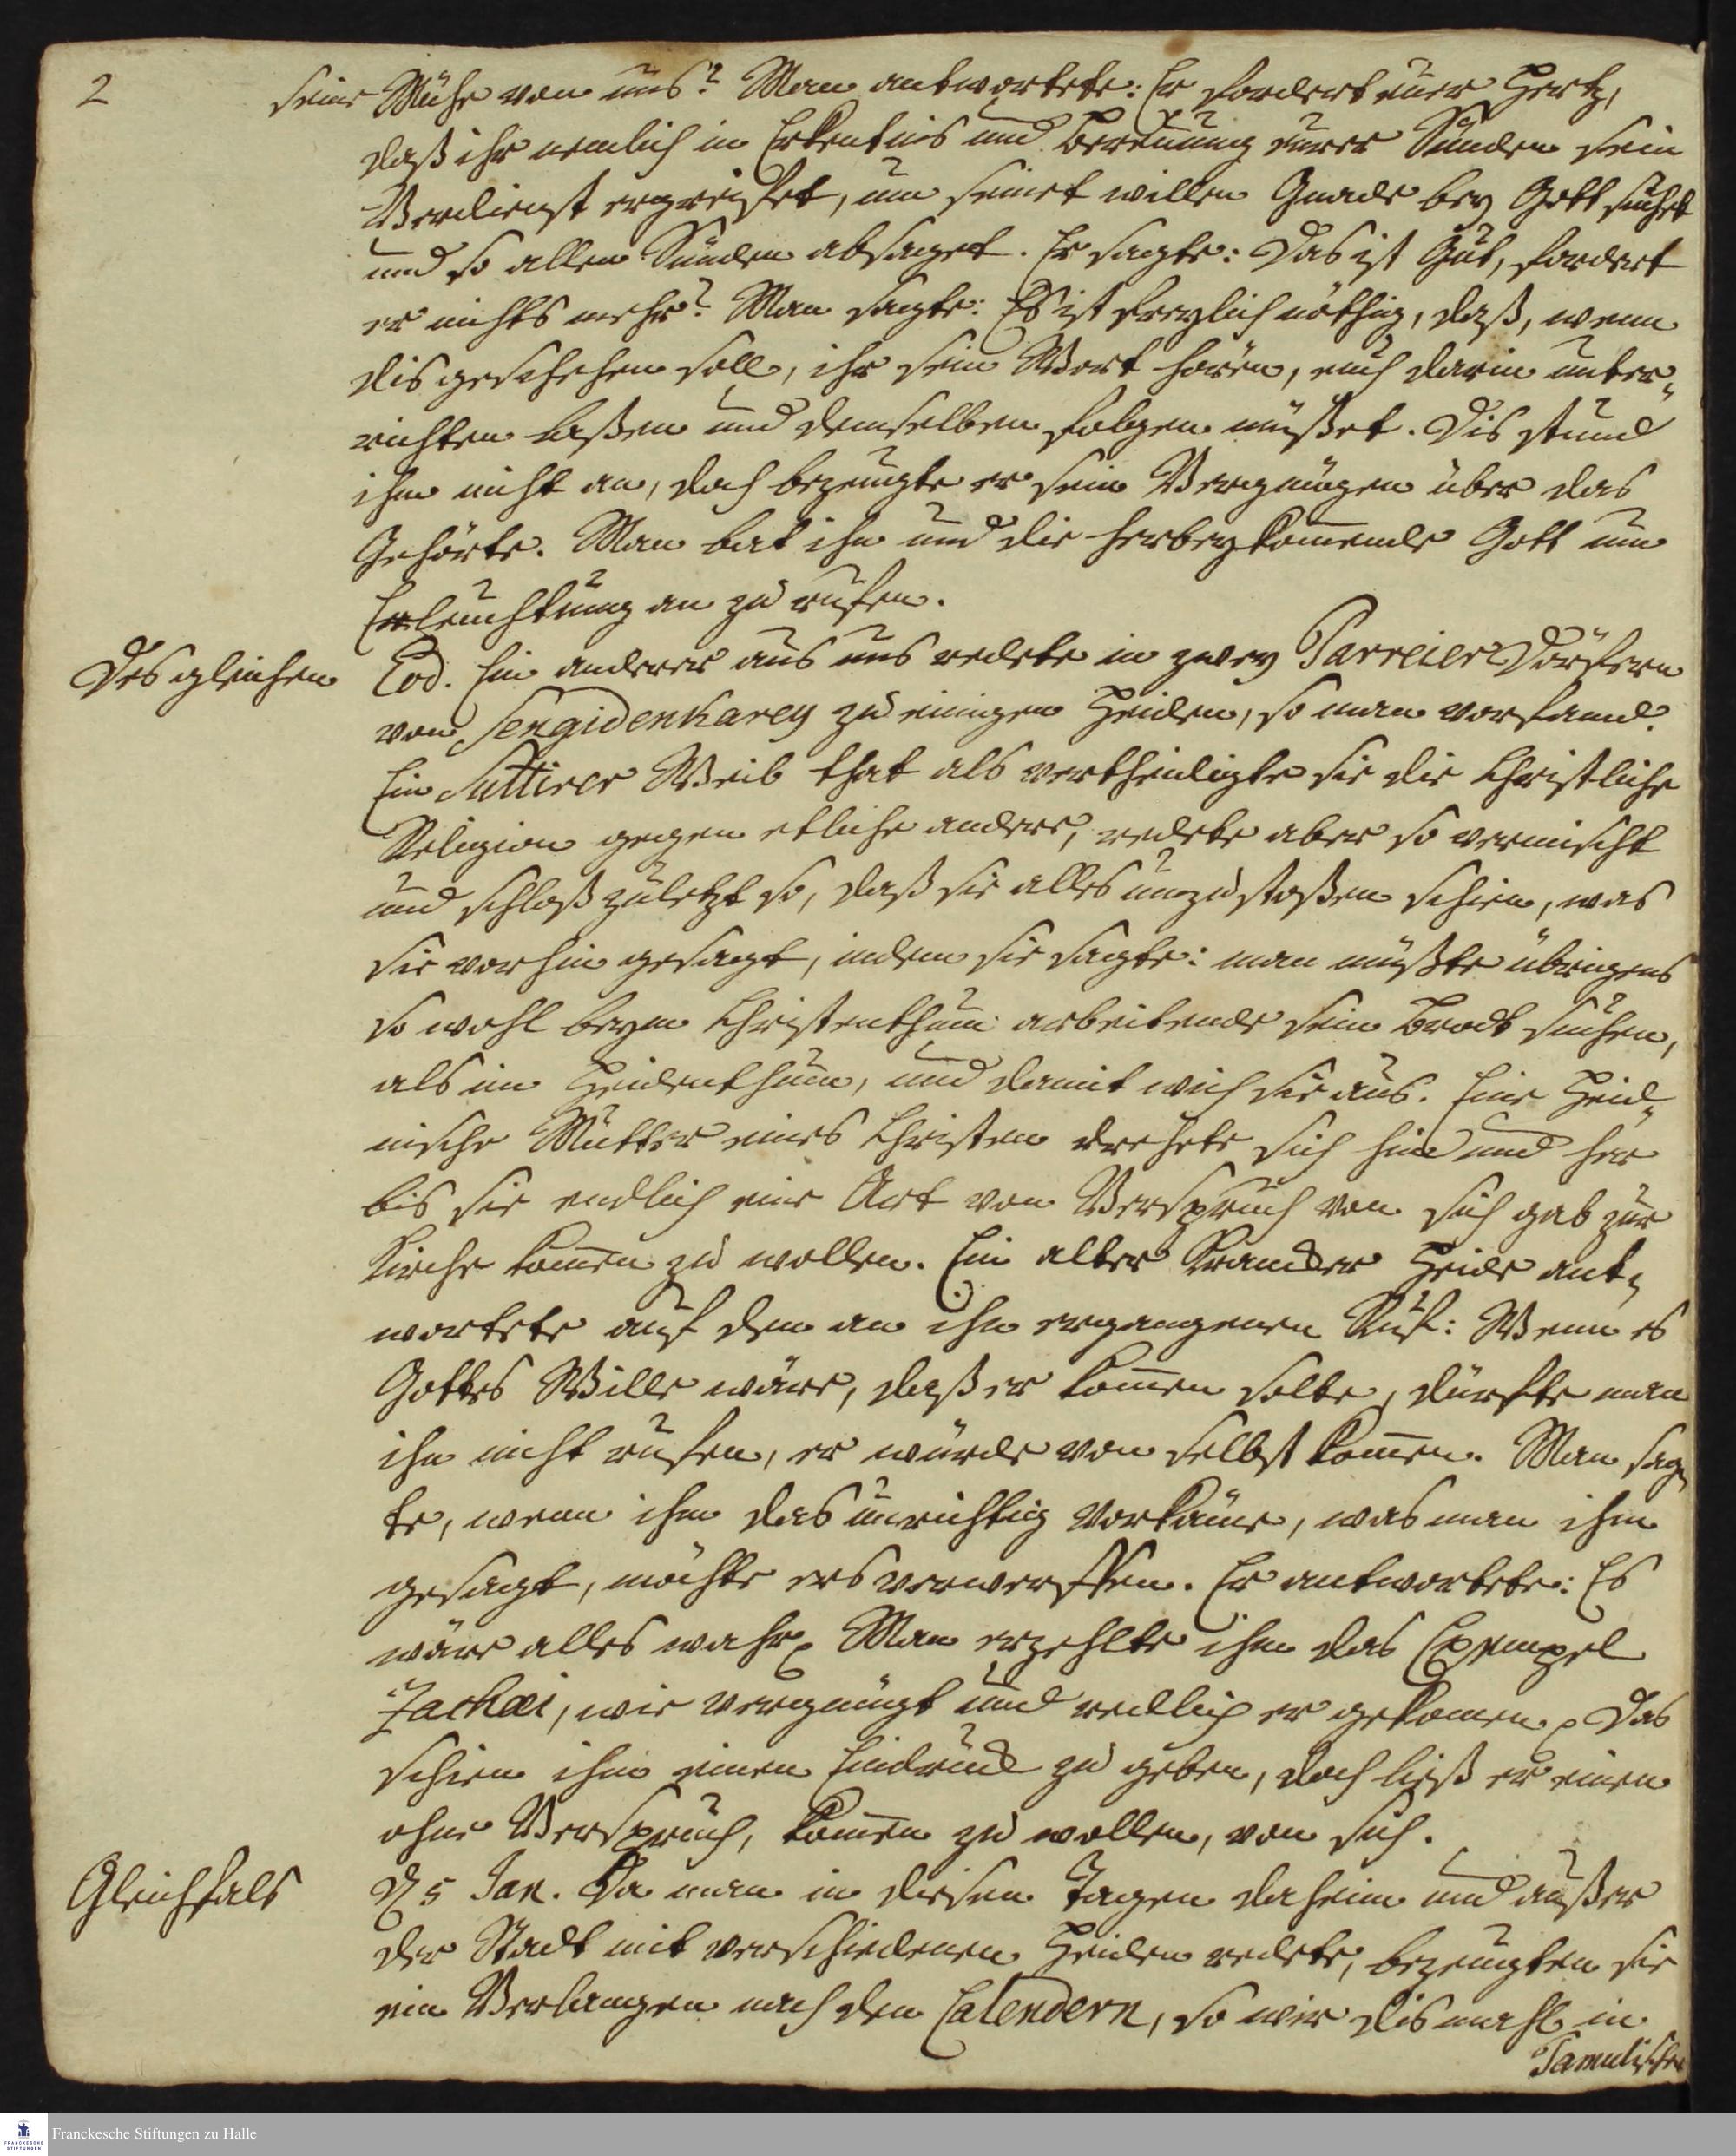 2
seine Mühe von uns? Man antwortete: Er fordert euer Hertz,
daß ihr nemlich in Erkentnis und Bereuung eurer Sünden sein
Verdienst ergreiffet, um seinet willen Gnade bey Gott suchet
und so allen Sünden absaget. Er sagte: Das ist Gut, fordert
er nichts mehr? Man sagte: Es ist freylich nöthig, daß, wenn
dis geschehen soll, ihr sein Wort hören, euch darin unter„
richten laßen und demselben folgen müßet. Dis stund
ihm nicht an, doch bezeugte er sein Vergnügen über das
Gehörte. Man bat ihn und die herbeykommende Gott um
Erleuchtung an zu rufen.
Desgleichen
Eod. Ein anderer aus uns redete in zwey Parreier Dörfern
von Sengidenkarey zu einigen Heiden, so man vorfand.
Ein Suttirer Weib that als vertheidigte sie die Christliche
Religion gegen etliche andere, redete aber so vermischt
und schloß zuletzt so, daß sie alles umzustoßen schien, was
sie vorhin gesagt, indem sie sagte: man müßte übrigens
so wohl beym Christenthum arbeitende sein Brodt suchen,
als im Heidenthum, und damit wich sie aus. Eine Heid„
nische Mutter eines Christen drehete sich hin und her
bis sie endlich eine Art von Verspruch von sich gab zur
Kirche kommen zu wollen. Ein alter Krancker Heide ant„
wortete auf den an ihn ergangenen Ruf: Wenn es
Gottes Wille wäre, daß er kommen solte, dürfte man
ihn nicht rufen, er würde von selbst kommen. Man sag„
te, wenn ihm das unrichtig vorkäme, was man ihm
gesagt, möchte ers verwerffen. Er antwortete: Es
wäre alles wahr. Man erzehlte ihm das Exempel
Zachæi, wie vergnügt und redlich er gekomen. Das
schien ihm einen Eindruck zu geben, doch ließ er einen
ohne Verspruch, kommen zu wollen, von sich.
Gleichfals
D 5 Jan. Da man in diesen Tagen daheim und außer
der Stadt mit verschiedenen Heiden redete, bezeugten sie
ein Verlangen nach den Calendern, so wir dismahl in
Tamulischer
Franckesche Stiftungen zu Halle
FRANCKESCHE
STIFTUNGEN